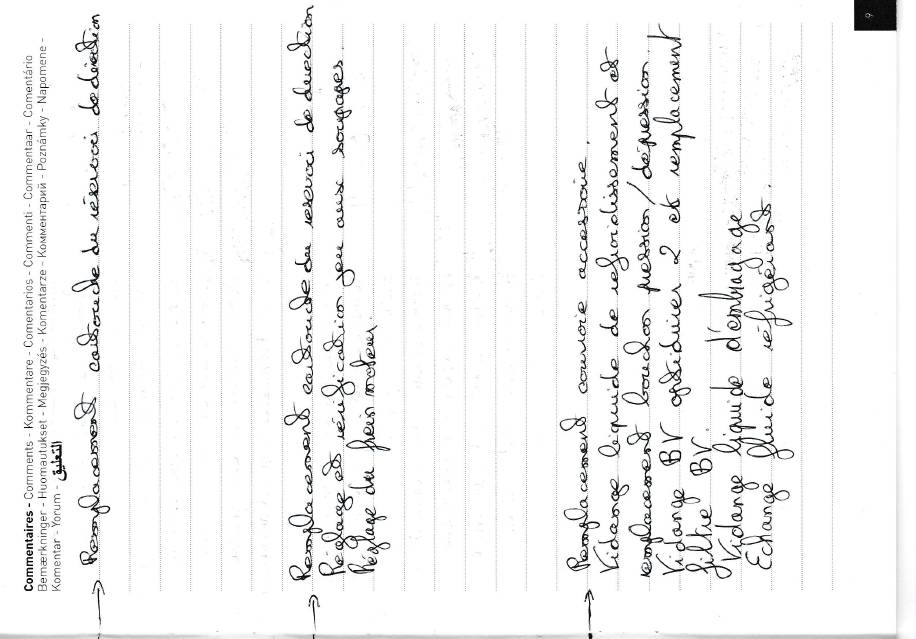 Commentaires - Comments - Kommentare - Comentarios - Commenti - Commentaar - Comentário
Bemærkninger - Huomautukset - Megjegyzés - Komentarze - Комментарий - Poznámky - Napomene -
Komentar - Yorum - التعليق
→ Remplacement cartouche du réservoi de direction
→ Remplacement cartouche du reservoi de direction
Réglage et vérification jeu aux soupapes.
Réglage du frein moteur.
→ Remplacement courroie accessoire.
Vidange liquide de refroidissement et
remplacement bouchon pression/dépression.
Vidange BV optidriver 2 et remplacement
filtre BV.
Vidange liquide d'embrayage.
Echange fluide réfrigérant.
9